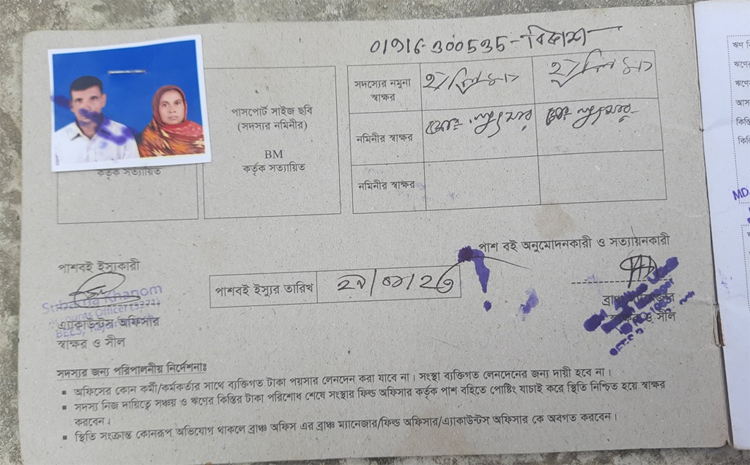 01916-300535-বিকাশ
পাসপোর্ট সাইজ ছবি
(সদস্যর নমিনির)
BM
কর্তৃক সত্যায়িত
কর্তৃক সত্যায়িত
সদস্যের নমুনা
স্বাক্ষর
নমিনীর স্বাক্ষর
নমিনীর স্বাক্ষর
পাশবই ইস্যুকারী
পাশ বই অনুমোদনকারী ও সত্যায়নকারী
পাশবই ইস্যুর তারিখ
Khanom
এ্যাকাউন্টস অফিসার
স্বাক্ষর ও সীল
ও সীল
সদস্যর জন্য পরিপালনীয় নির্দেশনাঃ
▪ অফিসের কোন কর্মী/কর্মকর্তার সাথে ব্যক্তিগত টাকা পয়সার লেনদেন করা যাবে না। সংস্থা ব্যক্তিগত লেনদেনের জন্য দায়ী হবে না।
▪ সদস্য নিজ দায়িত্বে সঞ্চয় ও ঋণের কিস্তির টাকা পরিশোধ শেষে সংস্থার ফিল্ড অফিসার কর্তৃক পাশ বহিতে পোষ্টিং যাচাই করে স্থিতি নিশ্চিত হয়ে স্বাক্ষর
করবেন।
▪ স্থিতি সংক্রান্ত কোনরূপ অভিযোগ থাকলে ব্রাঞ্চ অফিস এর ব্রাঞ্চ ম্যানেজার/ফিল্ড অফিসার/এ্যাকাউন্টস অফিসার কে অবগত করবেন।
MD